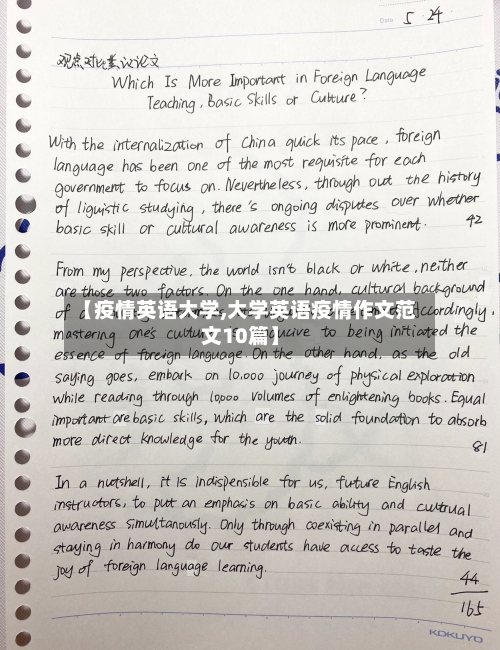 Date 5 24
观点对比类议论文
Which Is More Important in Foreign Language
Teaching, Basic Skills or Culture?
With the internalization of China quick its pace, foreign
language has been one of the most requisite for each
government to focus on. Nevertheless, through out the history
of liguistic studying, there's ongoing disputes over whether
basic skill or cultural awareness is more prominent. 42
From my perspective, the world isn't black or white, neither
are those two factors. On the one hand, cultural background
of
【疫情英语大学,大学英语疫情作文范
文10篇】
accordingly,
mastering one's to being initiated the
essence of foreign language. On the other hand, as the old
saying goes, embark on 10.000 journey of physical exploration
while reading through 10000 volumes of enlightening books. Equal
important are basic skills, which are the solid foundation to absorb
more direct knowledge for the youth. 81
In a nutshell, it is indispensible for us, future English
instructors, to put an emphasis on basic ability and cultrual
awareness simultanously. Only through coexisting in parallel and
staying in harmony do our students have access to taste the
joy of foreign language learning.
44
165
KOKUYO